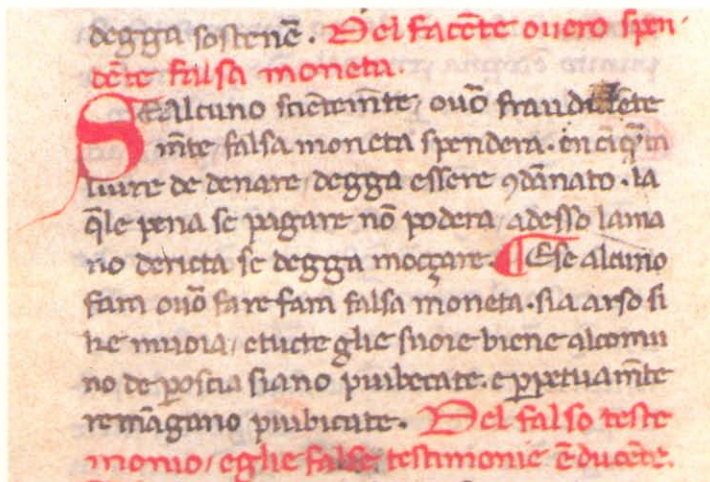 degga sostenē. Del facēte ouero spen
dēte falsa moneta.
Se alcuno sciētemīte, ouō fraudulēte
mīte, falsa moneta spendera. en ciq̄īta
liure de denare, degga essere ꝯdānato. la
q̄le pena se pagare nō podera, adesso la ma
no dericta se degga moççare. ¶ E se alcuno
fara ouō fare fara falsa moneta. sia arso si
ke muoia, e tucte glie suoie biene al comu
no de ꝑoscia siano piubecate. e ꝑpetuamīte
remāgano piubicate. Del falso teste
monio, e glie false testimonie ēducēte.